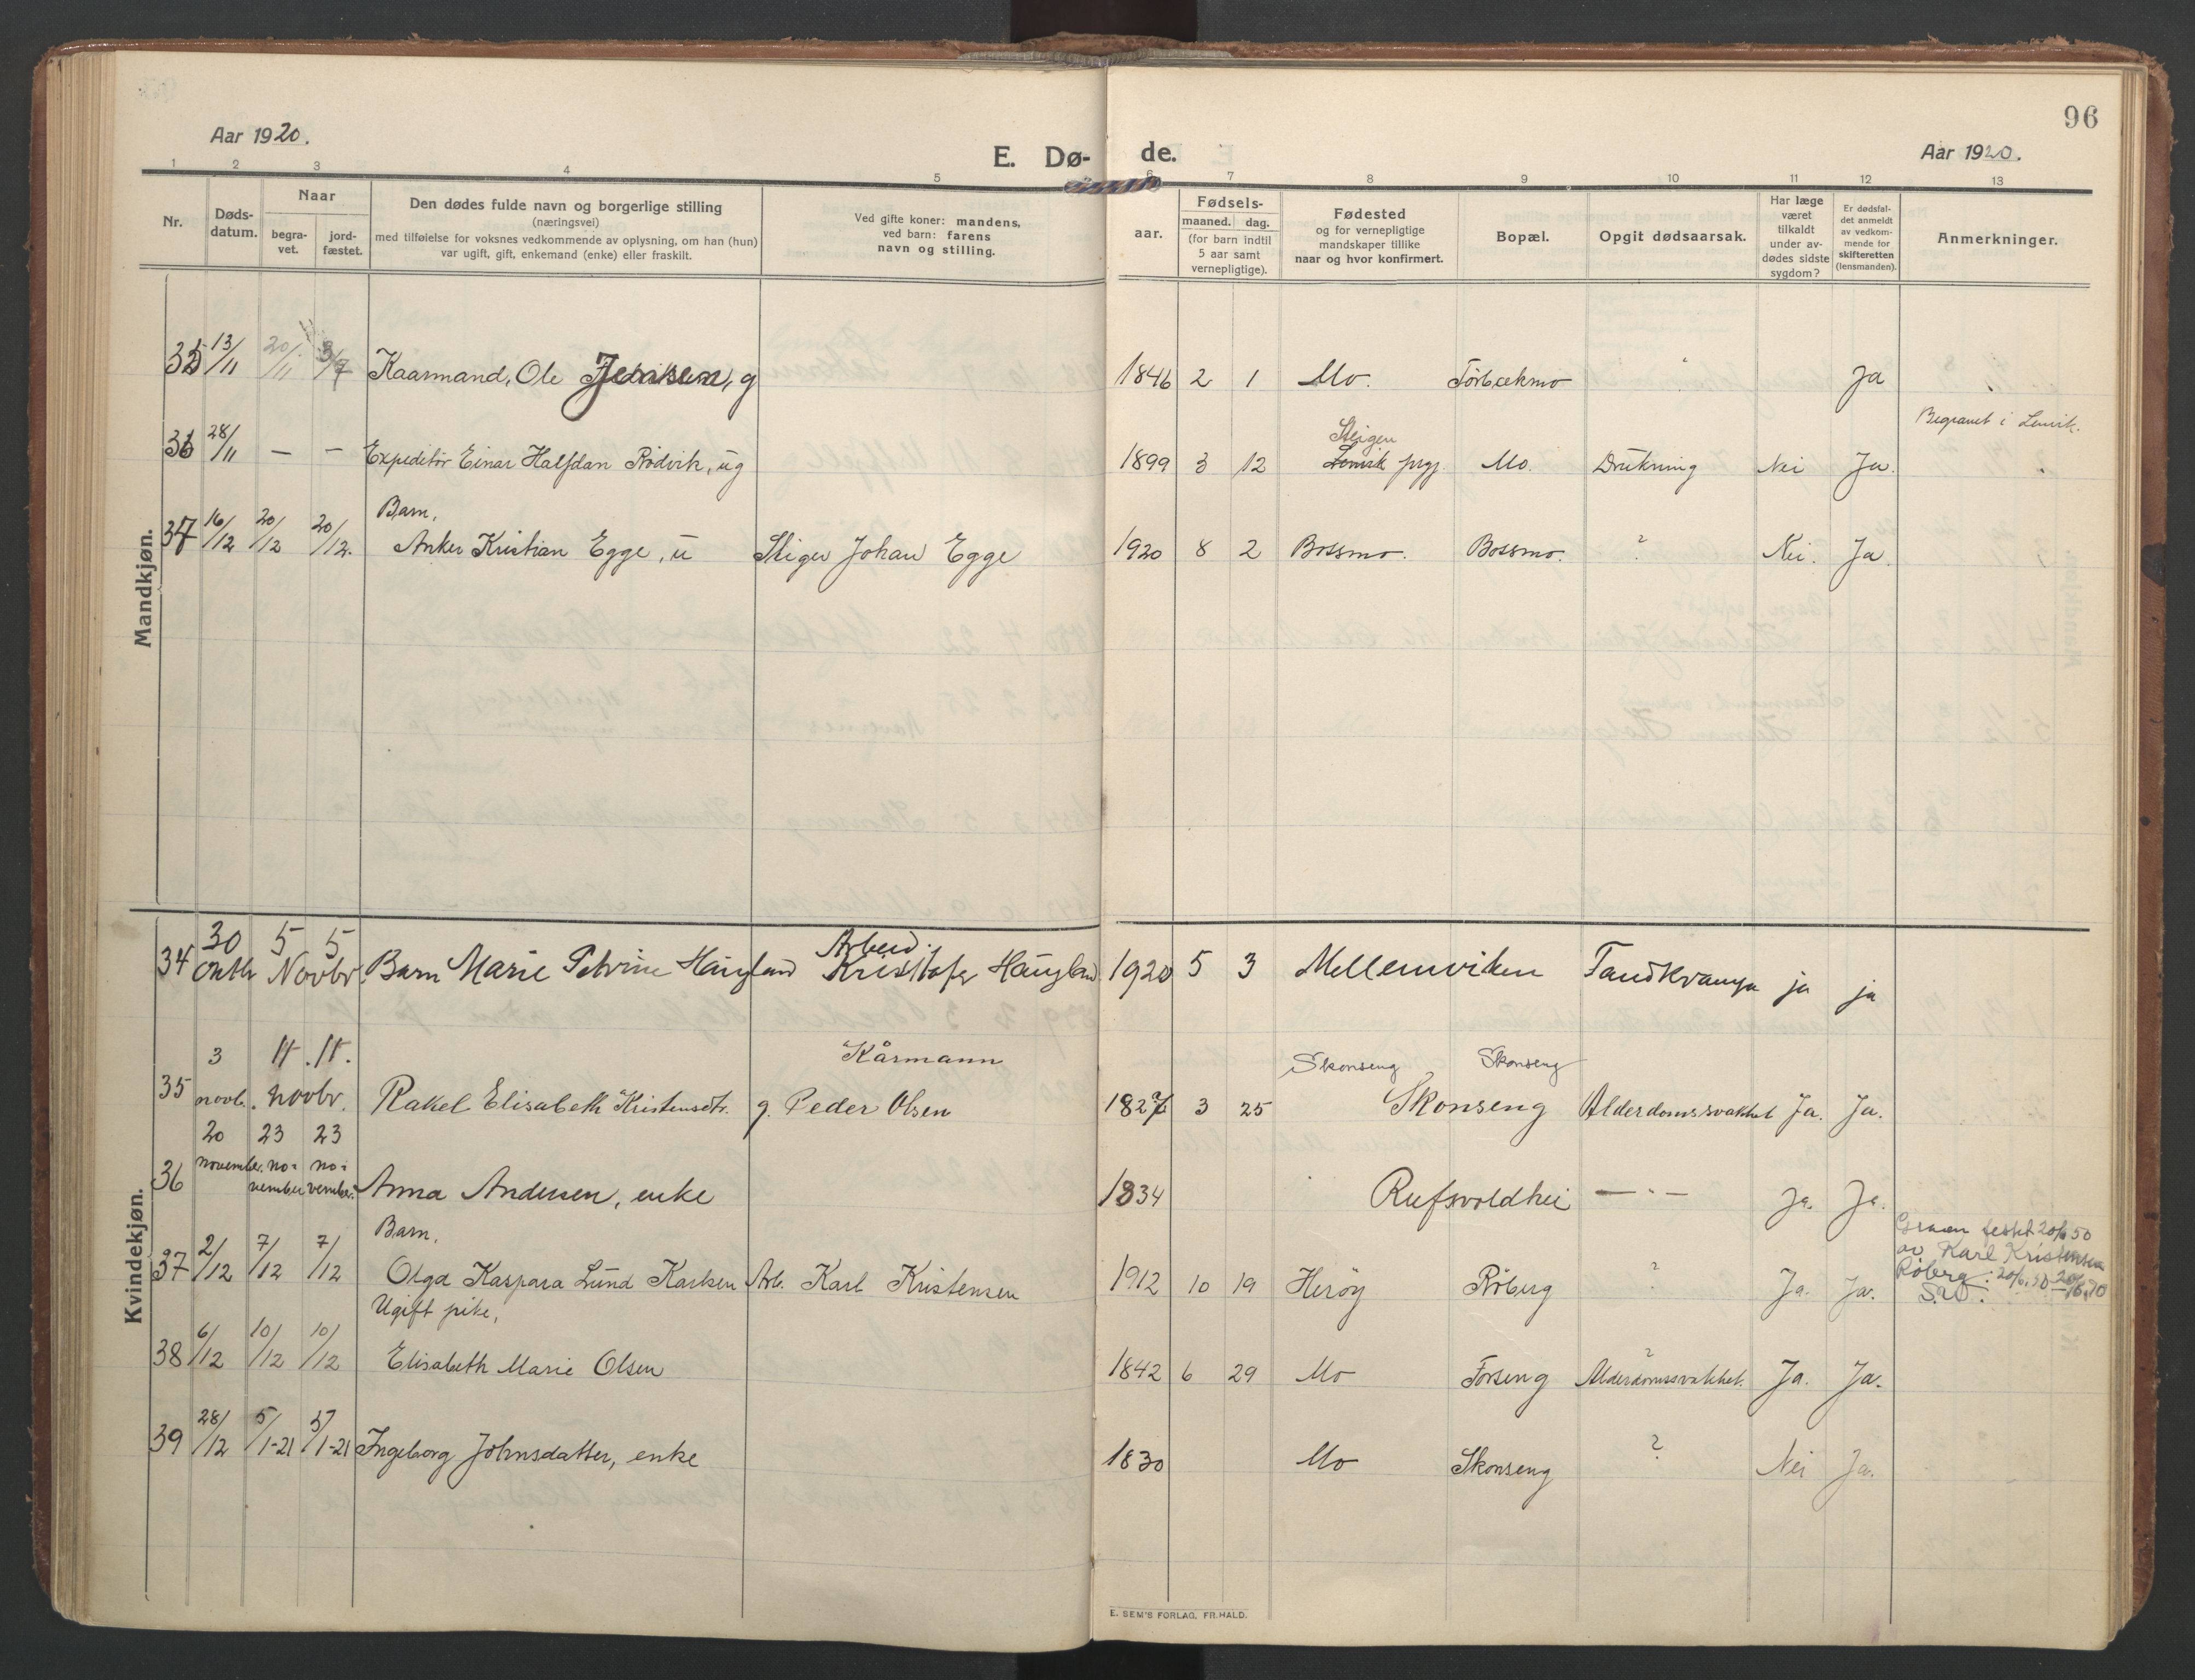 96
Aar 1920.
E. Dø- de.
Aar 1920.
1 2 3 4 5 6 7 8 9 10 11 12 13
Nr.
Døds-
datum.
Naar
begra-
vet.
jord-
fæstet.
Den dødes fulde navn og borgerlige stilling
(næringsvei)
med tilføielse for voksnes vedkommende av oplysning, om han (hun)
var ugift, gift, enkemand (enke) eller fraskilt.
Ved gifte koner: mandens,
ved barn: farens
navn og stilling.
Fødsels-
aar.
maaned. dag.
(for barn indtil
5 aar samt
vernepligtige).
Fødested
og for vernepligtige
mandskaper tillike
naar og hvor konfirmert.
Bopæl.
Opgit dødsaarsak.
Har læge
været
tilkaldt
under av-
dødes sidste
sygdom?
Er dødsfal-
det anmeldt
av vedkom-
mende for
skifteretten
(lensmanden).
Anmerkninger.
Mandkjøn.
35 13/11 20/11 Kaarmand, Ole g 1846 2 1 Mo. Ja
Begravet i Lenvik.
Steigen
36 28/11 — — Expeditør Einar Halfdan Rødvik, ug 1899 3 12 Lenvik prgj. Mo. Drukning Nei Ja.
Barn,
37 16/12 20/12 20/12. Anker Kristian Egge, u Stiger Johan Egge 1920 8 2 Bossmo. Bossmo. ? Nei. Ja.
Kvindekjøn.
30 5 5 Arbeid.
34 Oktb Novbr. Barn Marie Petrine Haugland Kristtofer Haugland 1920 5 3 Mellemviken ja ja
3 11. 11. Kårmann Skonseng Skonseng
35 novb. novbr. Rakel Elisabeth Kristensdtr. g. Peder Olsen 1827 3 25 Skonseng Alderdomssvakhet Ja. Ja.
20 23 23
november. no- no-
36 vember vember. Anna Andersen, enke 1834 —"— Ja. Ja.
Barn,
37 2/12 7/12 7/12 Olga Kaspara Lund Karlsen Arb. Karl Kristensen 1912 10 19 Herøy Røberg ? Ja. Ja.
Graven festet 20/6 50
av Karl Kristensen
Røberg: 20/6.50-20/6.70
Ugift pike,
38 6/12 10/12 10/12 Elisabeth Marie Olsen 1842 6 29 Mo Forseng ? Alderdomssvakhet. Ja. Ja.
39 28/12 5/1-21 5/1-21 Ingeborg Johnsdatter, enke 1830 Mo Skonseng ? Nei Ja.
E. SEM'S FORLAG, FR. HALD.